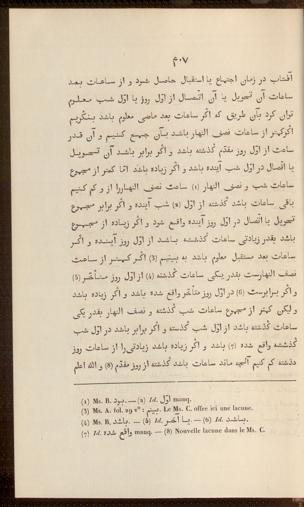 ۴۰۷
آفتاب در زمان اجتماع یا استقبال حاصل شود و از ساعات بعد
ساعات آن تحویل یا آن اتّصال از اوّل روز یا اوّل شب معلوم
توان کرد بآن طریق که اگر ساعات بعد ماضی معلوم باشد بنگریم
اگر کمتر از ساعات نصف النهار باشد بآن جمع کنیم و آن قدر
ساعت از اوّل روز مقدّم گذشته باشد و اگر برابر باشد آن تحویل
یا اتّصال در اوّل شب آینده باشد و اگر زیاده باشد امّا کمتر از مجموع
ساعات شب و نصف النهار (1) ساعت نصف النهاررا از و کم کنیم
باقی ساعات باشد گذشته از اوّل (2) شب آینده و اگر برابر مجموع
تحویل یا اتّصال در اوّل روز آینده واقع شود و اگر زیاده از مجموع
باشد بقدر زیادتی ساعات گذشته باشد از اوّل روز آینده و اگر
ساعات بعد مستقبل معلوم باشد به بینیم (3) اگر کمتر از ساعت
نصف النهارست بقدر یکی ساعات گذشته (4) از اوّل روز متأخّر (5)
و اگر برابرست (6) در اوّل روز متأخّر واقع شده باشد و اگر زیاده باشد
و لیکن کمتر از مجموع ساعات شب گذشته و نصف النهار بقدر یکی
ساعات گذشته باشد از اوّل شب گذشته و اگر برابر باشد در اوّل شب
گذشته واقع شده (7) باشد و اگر زیاده باشد زیادتی‌را از ساعات روز
گذشته کم کنیم آنچه ماند ساعات باشد گذشته از روز مقدّم (8) و الله اعلم
(1) Ms. B. بود. — (2) Id. اوّل manq.
(3) Ms. A. fol. 29 v° : بینیم. Le Ms. C. offre ici une lacune.
(4) Ms. B. باشد. — (5) Id. یا آخر. — (6) Id. باشد.
(7) Id. واقع شده manq. — (8) Nouvelle lacune dans le Ms. C.